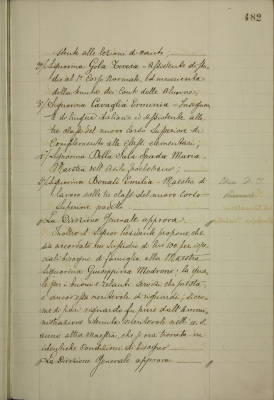 482
stente alle lezioni di canto;
2º/ Signorina Gola Teresa - Assistente di Stu-
dio al 1º Corso Normale, ed incaricata
della tenuta dei Conti delle Alunne;
3º/ Signorina Cavaglià Erminia - Insegnan
te di lingua italiana ed assistente alle
tre classi del nuovo Corso Superiore di
Complemento alle Classi elementari;
4º/ Signorina Della Sala Spada Maria -
Maestra nell'Asilo
5º/ Signorina Bonali Emilia - Maestra di
lavoro nelle tre classi del nuovo Corso
Superiore predetto
La Direzione Generale approva.
Inoltre il Signor Presidente propone che
sia accordato un sussidio di Lire 100 per spe-
ciali bisogni di famiglia alla Maestra
Signorina Giuseppina Medrone; la qua-
le per i buoni e zelanti servizi che presta,
è ancor più meritevole di riguardi, siccome
di pari riguardo fu pure dall'Ammi-
nistrazione
anno altra maestra, che si era trovata in
identiche condizioni di bisogno.
La Direzione Generale approva.